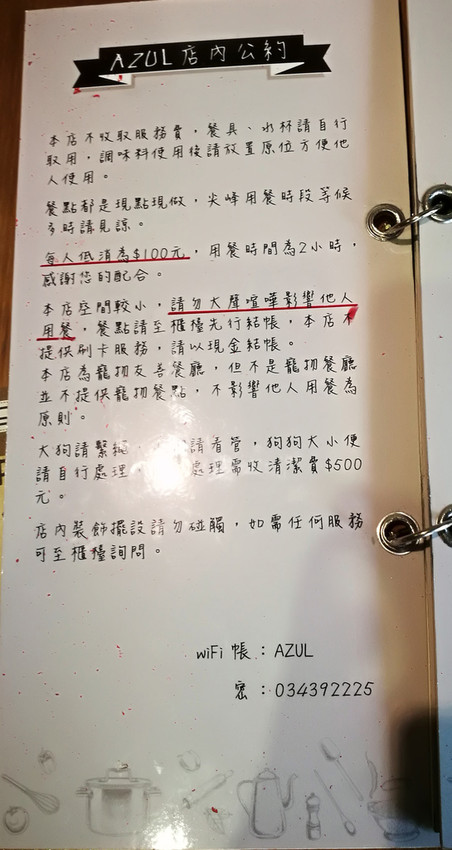 AZUL店內公約
本店不收取服務費，餐具、水杯請自行
取用，調味料使用後請放置原位方便他
人使用。
餐點都是現點現做，尖峰用餐時段等候
多時請見諒。
每人低消為$100元，用餐時間為2小時，
感謝您的配合。
本店空間較小，請勿大聲喧嘩影響他人
用餐，餐點請至櫃檯先行結帳，本店不
提供刷卡服務，請以現金結帳。
本店為寵物友善餐廳，但不是寵物餐廳
並不提供寵物餐點，不影響他人用餐為
原則。
大狗請繫 請看管，狗狗大小便
請自行處理， 處理需收清潔費$500
元。
店內裝飾擺設請勿碰觸，如需任何服務
可至櫃檯詢問。
wiFi 帳：AZUL
密：034392225